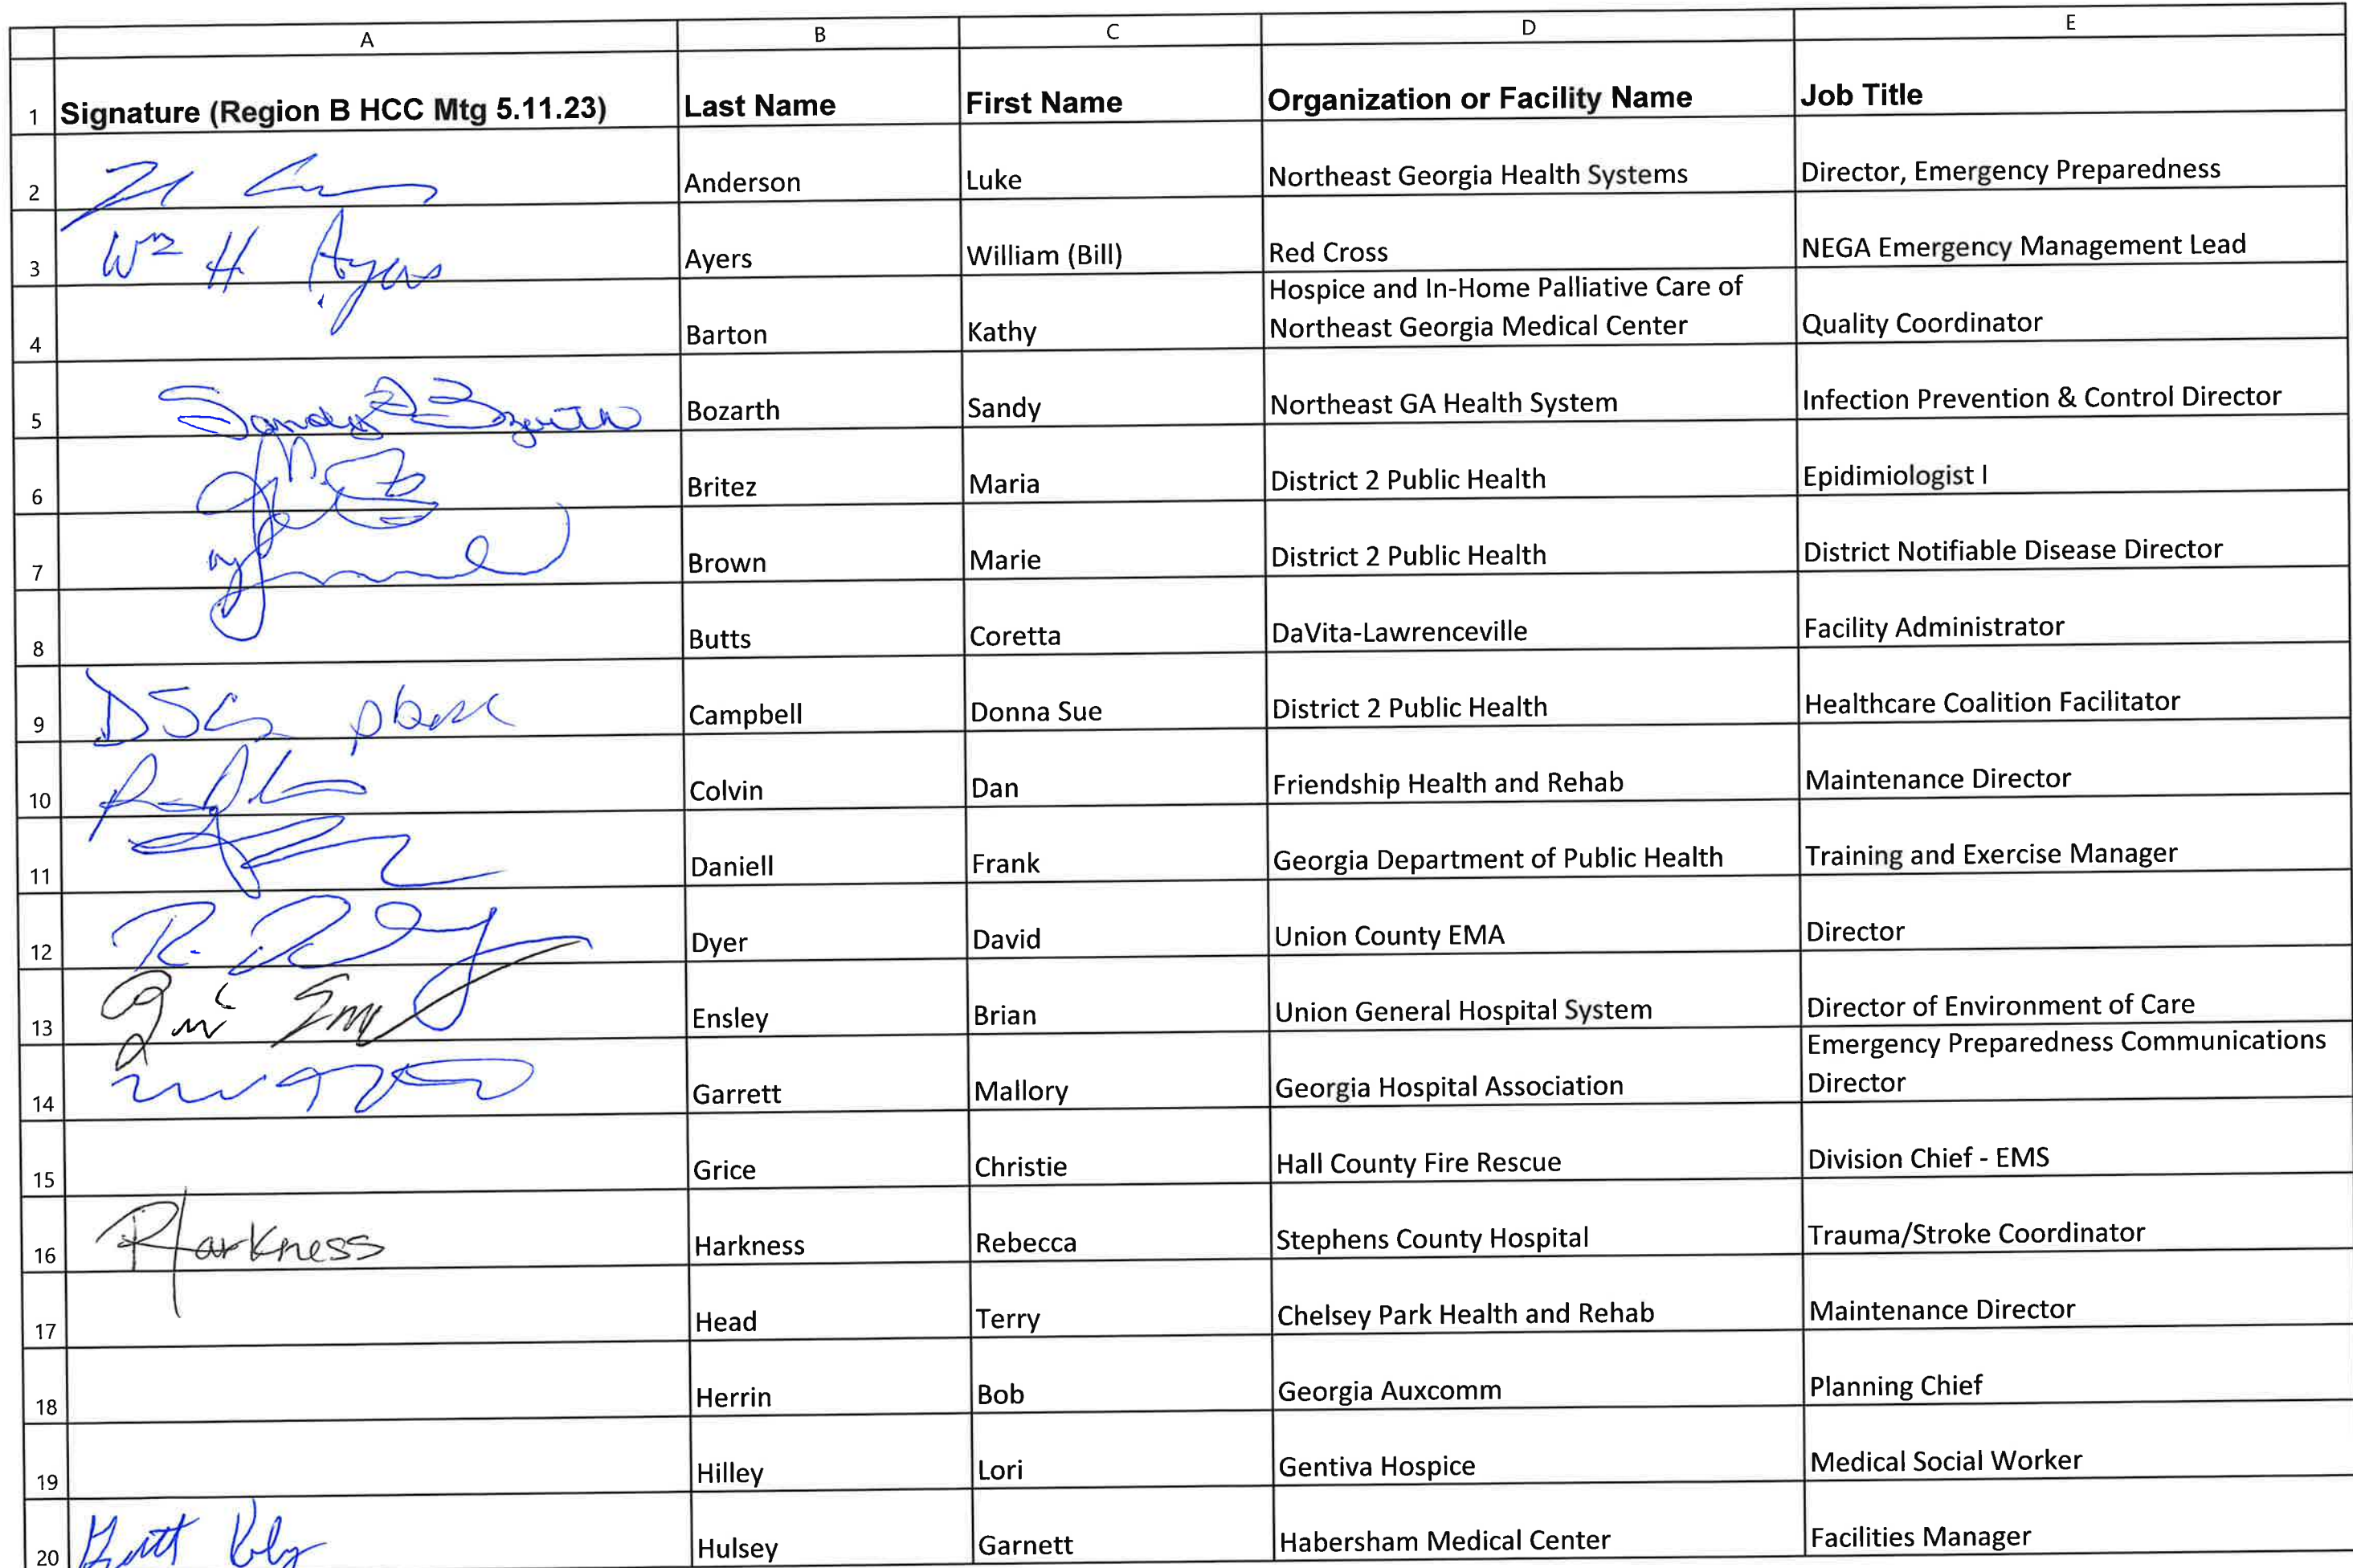 A B C D E
1 Signature (Region B HCC Mtg 5.11.23) Last Name First Name Organization or Facility Name Job Title
2 Anderson Luke Northeast Georgia Health Systems Director, Emergency Preparedness
3 Wm H Ayers Ayers William (Bill) Red Cross NEGA Emergency Management Lead
Hospice and In-Home Palliative Care of
4 Barton Kathy Northeast Georgia Medical Center Quality Coordinator
5 Sandy Bozarth Bozarth Sandy Northeast GA Health System Infection Prevention & Control Director
6 Britez Maria District 2 Public Health Epidimiologist I
7 Brown Marie District 2 Public Health District Notifiable Disease Director
8 Butts Coretta DaVita-Lawrenceville Facility Administrator
9 Campbell Donna Sue District 2 Public Health Healthcare Coalition Facilitator
10 Colvin Dan Friendship Health and Rehab Maintenance Director
11 Daniell Frank Georgia Department of Public Health Training and Exercise Manager
12 Dyer David Union County EMA Director
13 Ensley Brian Union General Hospital System Director of Environment of Care
Emergency Preparedness Communications
14 Garrett Mallory Georgia Hospital Association Director
15 Grice Christie Hall County Fire Rescue Division Chief - EMS
16 RHarkness Harkness Rebecca Stephens County Hospital Trauma/Stroke Coordinator
17 Head Terry Chelsey Park Health and Rehab Maintenance Director
18 Herrin Bob Georgia Auxcomm Planning Chief
19 Hilley Lori Gentiva Hospice Medical Social Worker
20 Hulsey Garnett Habersham Medical Center Facilities Manager